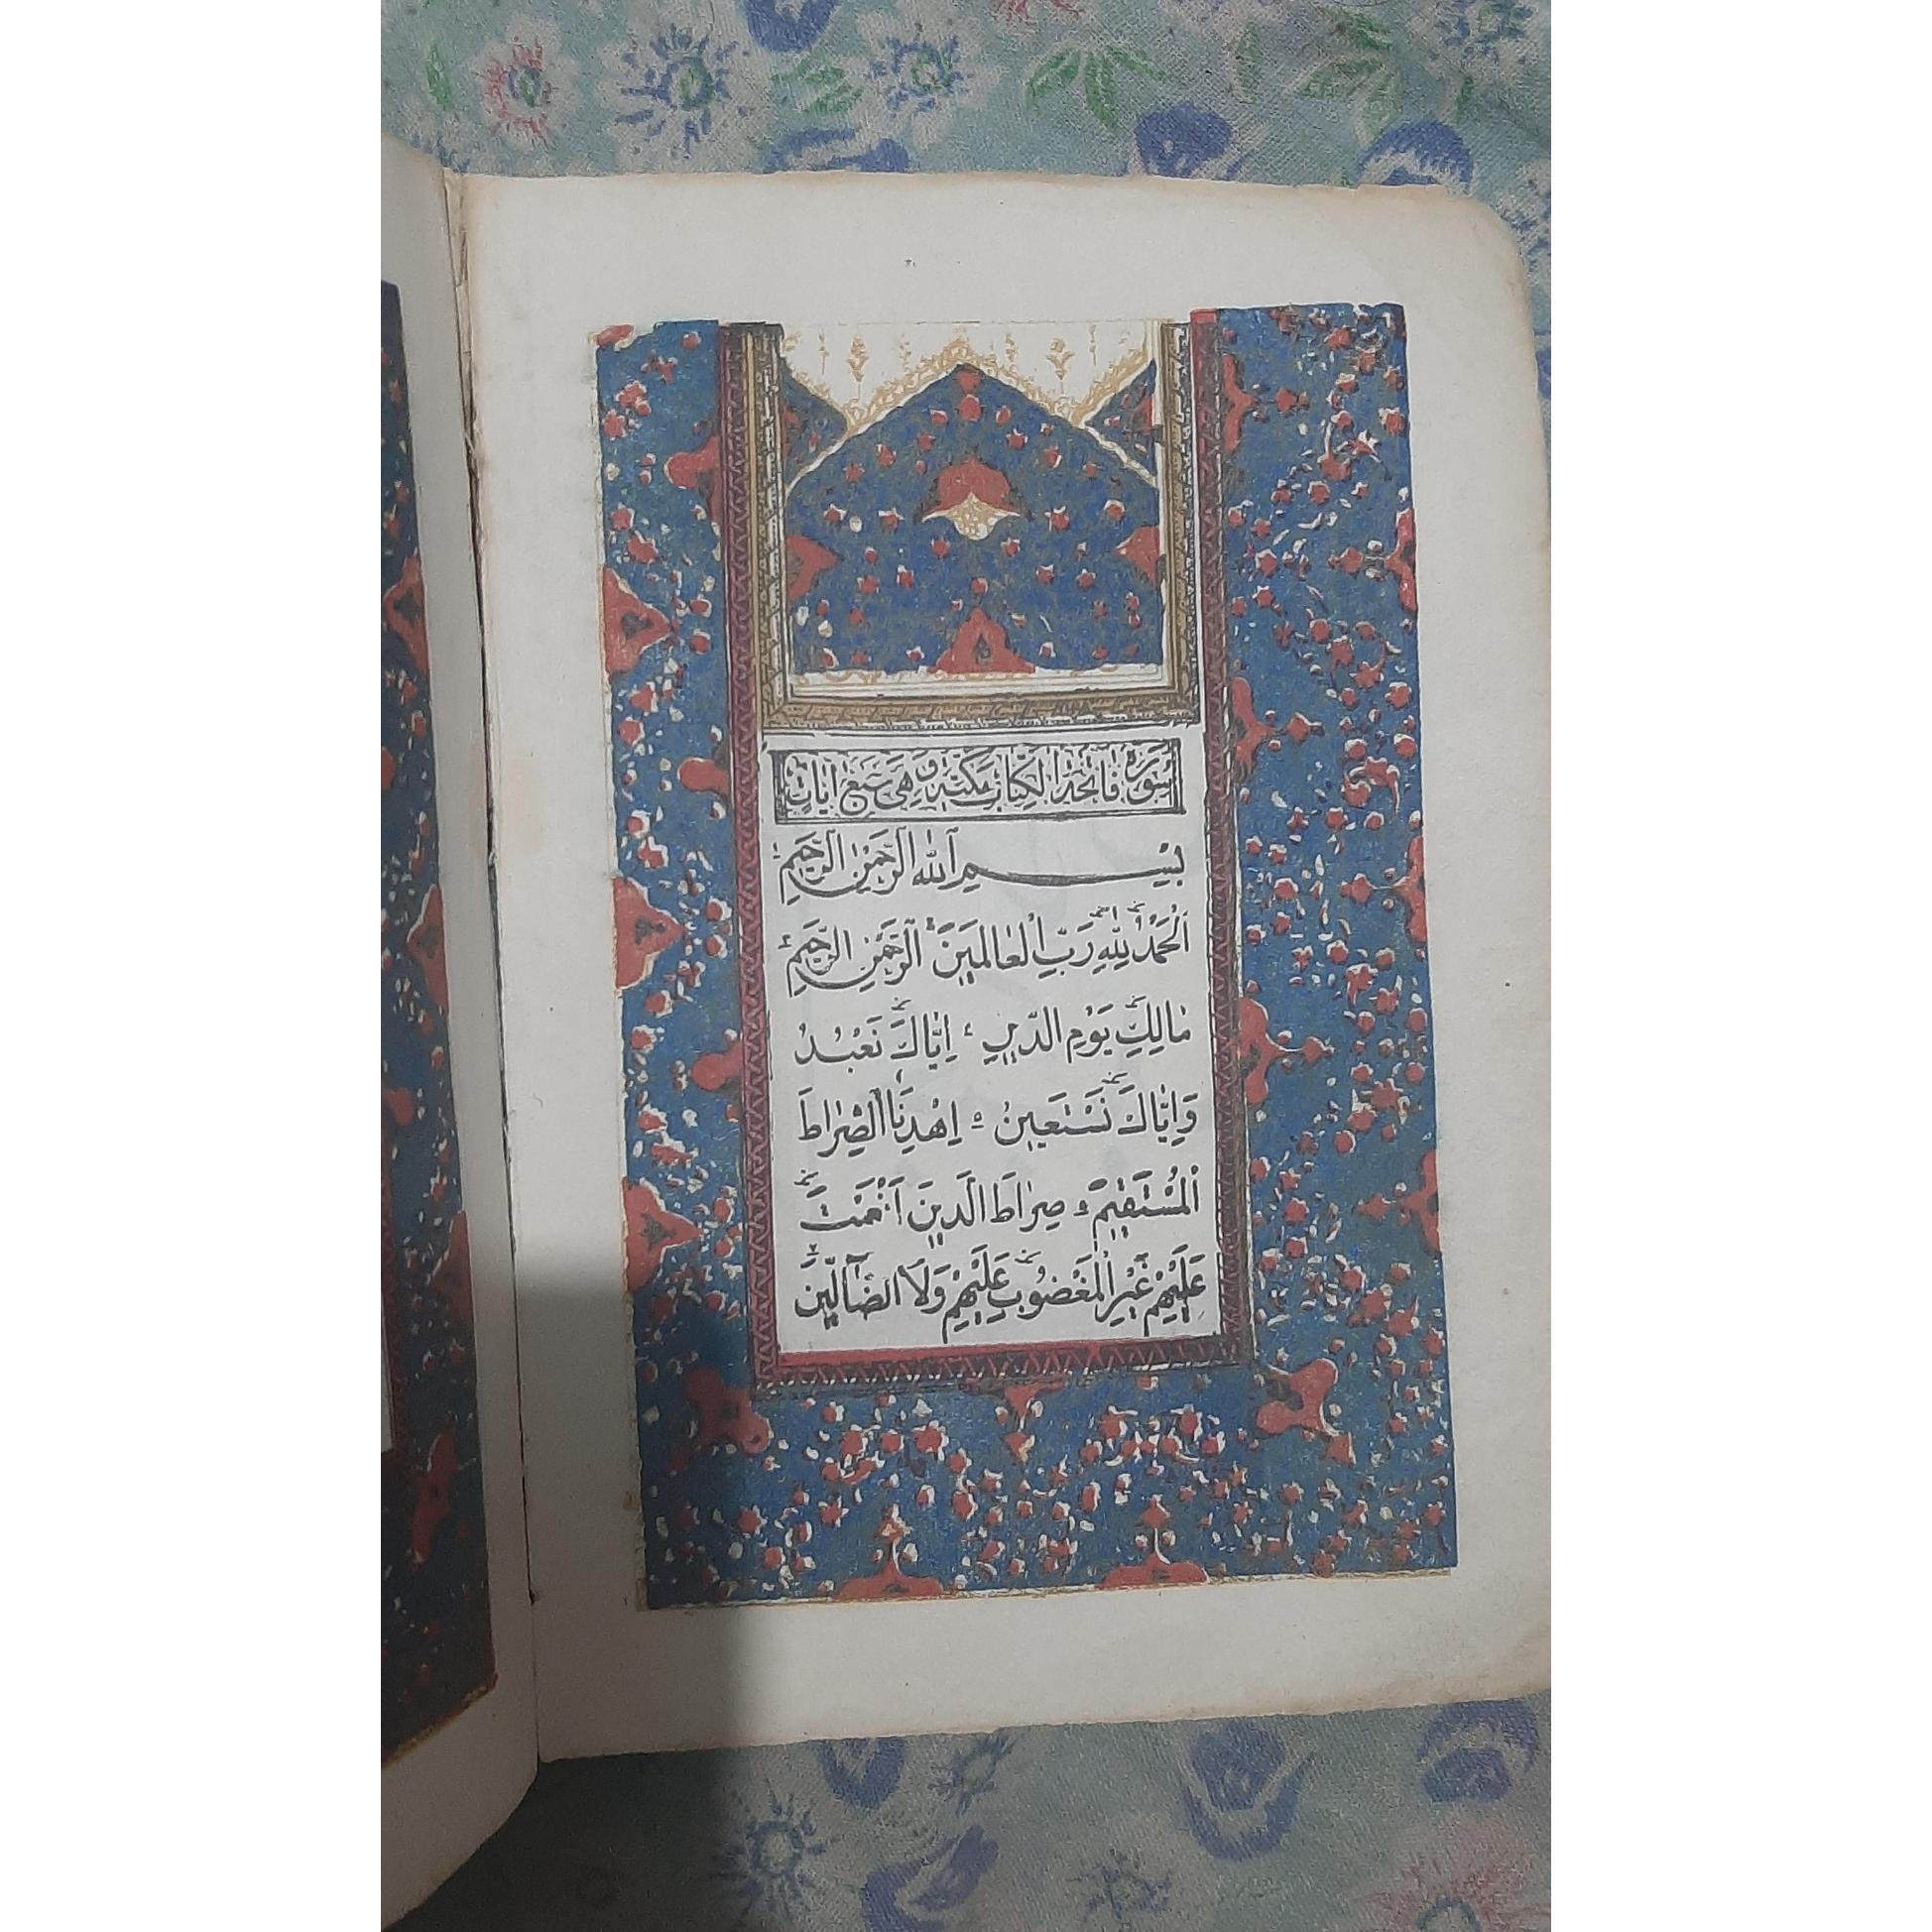 سُورَة فَاتِحَة الكِتَاب مَكيَّة وَهِيَ سَبْعُ اٰيَات
بِسْمِ اللّٰهِ الرَّحْمٰنِ الرَّحِيمِ ١
اَلْحَمْدُ لِلّٰهِ رَبِّ الْعٰالَمِينَ ٢ اَلرَّحْمٰنِ الرَّحِيمِ ٣
مٰالِكِ يَوْمِ الدِّينِ ٤ اِيّٰاكَ نَعْبُدُ
وَاِيّٰاكَ نَسْتَعِينُ ٥ اِهْدِنَا الصِّرٰاطَ
الْمُسْتَقِيمَ ٦ صِرٰاطَ الَّذِينَ اَنْعَمْتَ
عَلَيْهِمْ غَيْرِ الْمَغْضُوبِ عَلَيْهِمْ وَلَا الضَّآلِّينَ ٧